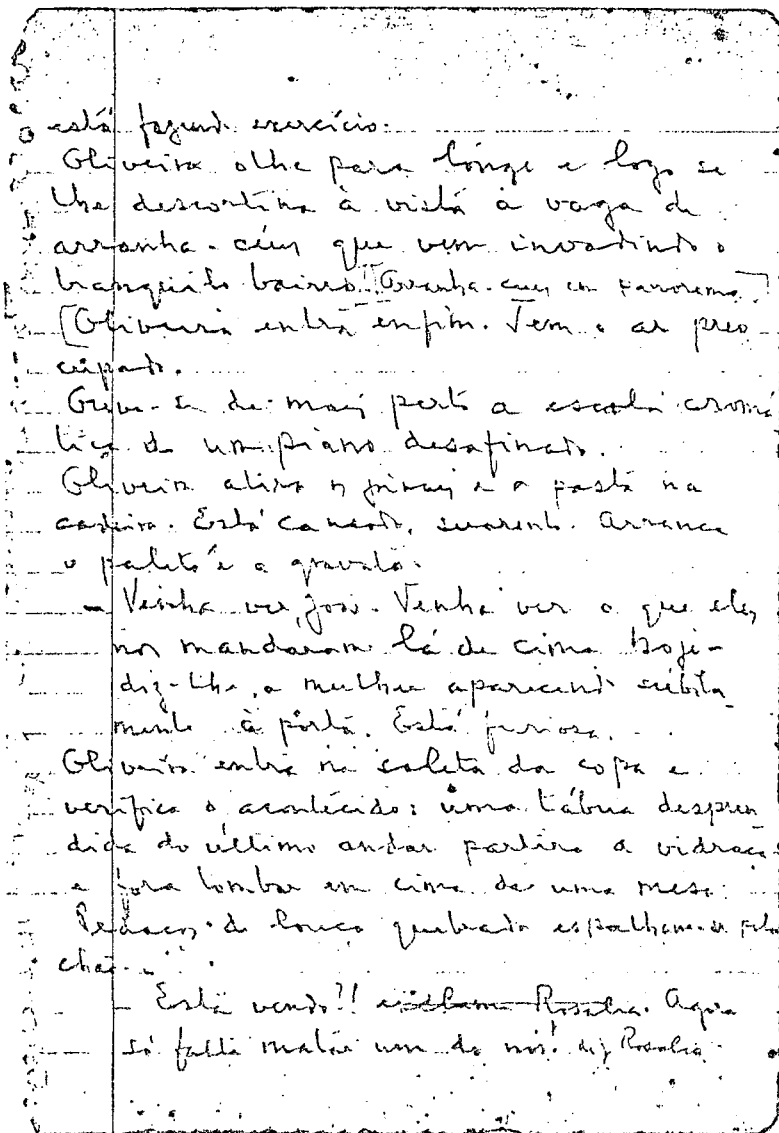 está fazendo exercício.
Oliveira olha para longe e logo se
lhe descortina à vista a vaga de
arranha-céus que vem invadindo o
tranquilo bairro. [Arranha-céus em panorama]
[Oliveira entra enfim. Tem o ar preo
cupado.
Ouve-se de mais perto a escala cromá
tica de um piano desafinado.
Oliveira atira os jornais e a pasta na
cadeira. Está cansado, suarento. Arranca
o paletó e a gravata.
- Venha ver, José. Venha ver o que eles
nos mandaram lá de cima hoje -
diz-lhe a mulher aparecendo subita
mente à porta. Está furiosa.
Oliveira entra na saleta da copa e
verifica o acontecido: uma tábua despren
dida do último andar partira a vidraça
e fora tombar em cima de uma mesa.
Pedaços de louça quebrada espalham-se pelo
chão.
- Está vendo?! exclama Rosalia. Agora
só falta matar um de nós! diz Rosalia